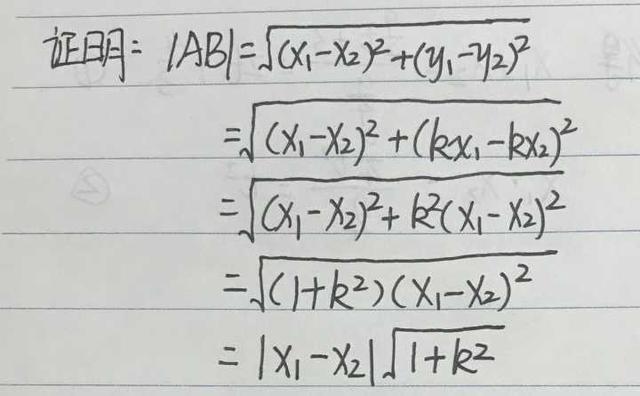 证明: |AB|=√((x₁-x₂)²+(y₁-y₂)²)
=√((x₁-x₂)²+(kx₁-kx₂)²)
=√((x₁-x₂)²+k²(x₁-x₂)²)
=√((1+k²)(x₁-x₂)²)
=|x₁-x₂|√(1+k²)